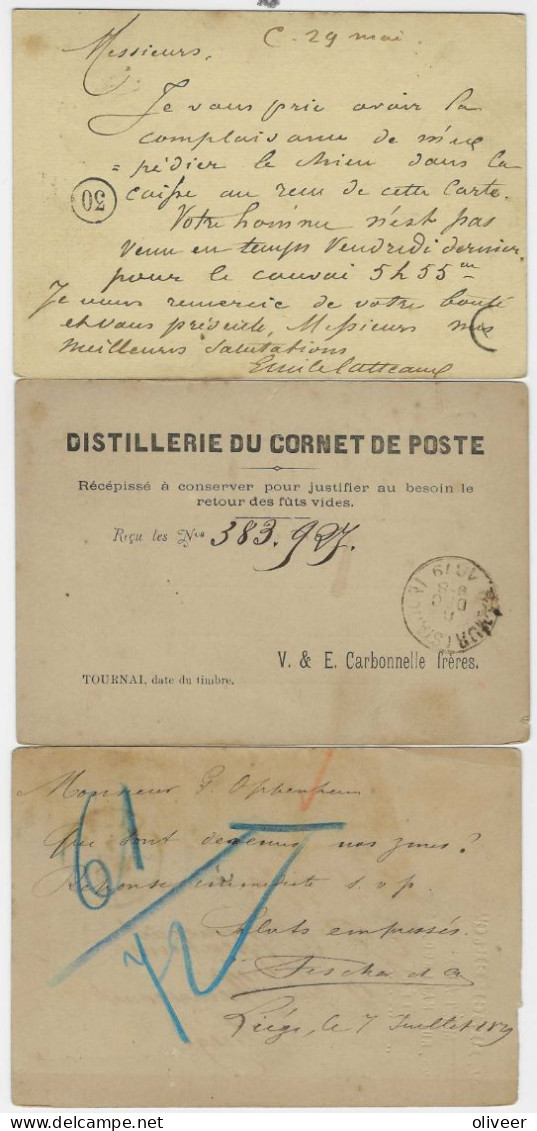 C. 29 mai
Messieurs,
Je vous prie avoir la
complaisance de m'ex
= pédier le chien dans la
caisse au reçu de cette Carte.
Votre homme n'est pas
venu en temps Vendredi dernier
pour le convoi 5 h 55 m
Je vous remercie de votre bonté
et vous présente, Messieurs mes
meilleurs salutations
30
DISTILLERIE DU CORNET DE POSTE
Récépissé à conserver pour justifier au besoin le
retour des fûts vides.
Reçu les Nos 383. 927.
V. & E. Carbonnelle frères.
TOURNAI, date du timbre.
Monsieur Oppenheim
Que sont devenus nos zincs?
Réponse immédiate s.v.p.
Saluts empressés.
Liége, le 7 Juillet
61
72
oliveer